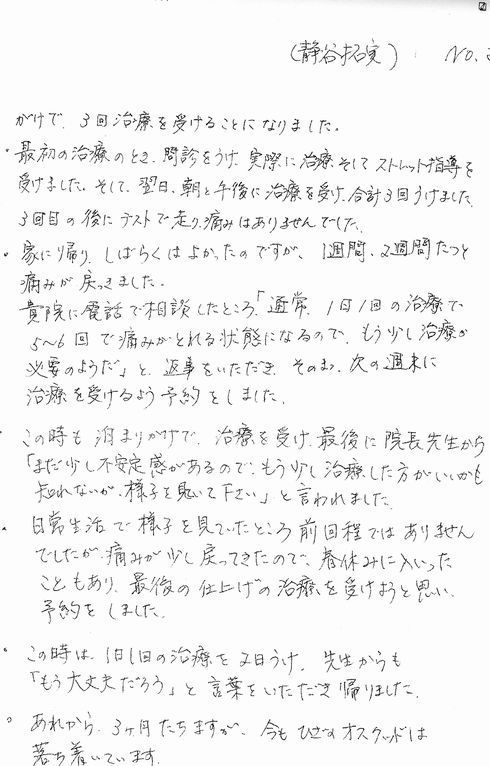 (静谷拓実) No.
がけで、3回治療を受けることになりました。
・最初の治療のとき、問診をうけ、実際に治療そしてストレット指導を
受けました。そして、翌日、朝と午後に治療を受け、合計3回うけました。
3回目の後にテストで走り、痛みはありませんでした。
・家に帰り、しばらくはよかったのですが、1週間、2週間たつと
痛みが戻ってきました。
貴院に電話で相談したところ、「通常、1日1回の治療で
5〜6回で痛みがとれる状態になるので、もう少し治療が
必要のようだ」と、返事をいただき、そのまま、次の週末に
治療を受けるよう予約をしました。
・この時も泊まりがけで、治療を受け、最後に院長先生から
「まだ少し不安定感があるので、もう少し治療した方がいいかも
知れないが、様子を見て下さい」と言われました。
・日常生活で様子を見ていたところ前回程ではありません
でしたが、痛みが少し戻ってきたので、春休みに入いった
こともあり、最後の仕上げの治療を受けようと思い、
予約をしました。
・この時は、1日1回の治療を2日うけ、先生からも
「もう大丈夫だろう」と言葉をいただき帰りました。
・あれから、3ヶ月たちますが、今もひざのオスグッドは
落ち着いています。